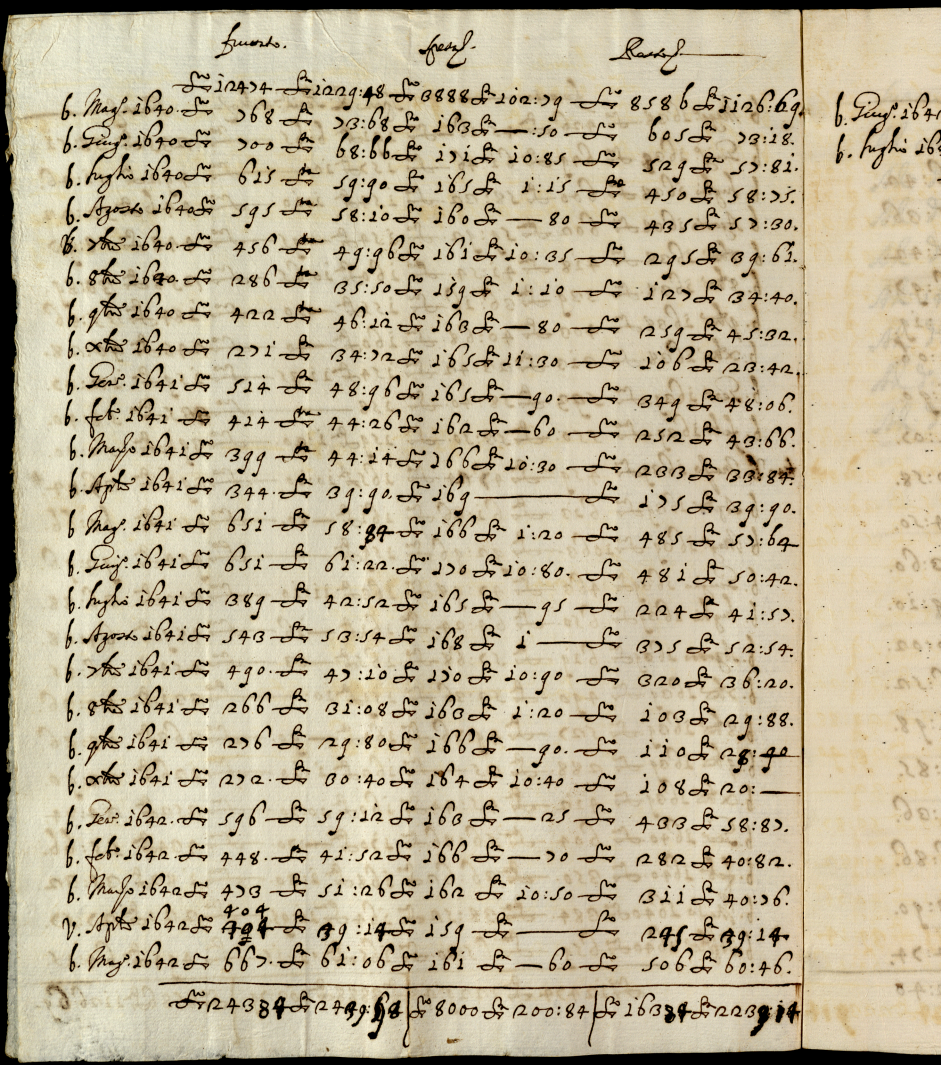 Spesa Resta
12474 1229:48 3888 102:79 8586 1126:69
b. Mag.o 1640 768 73:68 163 — :50 605 73:18.
b. Giug.o 1640 700 68:66 171 10:85 529 57:81.
b. luglio 1640 615 59:90 165 1:15 450 58:75.
b. Agosto 1640 595 58:10 160 — 80 435 57:30.
b. 7bre 1640 456 49:96 161 10:35 295 39:61.
b. 8bre 1640 286 35:50 159 1:10 127 34:40.
b. 9bre 1640 422 46:12 163 — 80 259 45:32.
b. xbre 1640 271 34:72 165 11:30 106 23:42.
b. Gen.o 1641 514 48:96 165 — 90 349 48:06.
b. feb.o 1641 414 44:26 162 — 60 252 43:66.
b. Marzo 1641 399 44:14 166 10:30 233 33:84.
b. Aple 1641 344 39:90 169 — 175 39:90.
b Mag.o 1641 651 58:84 166 1:20 485 57:64
b. Giug.o 1641 651 61:22 170 10:80 481 50:42.
b. luglio 1641 389 42:52 165 — 95 224 41:57.
b. Agosto 1641 543 53:54 168 1 — 375 52:54.
b. 7bre 1641 490 47:10 170 10:90 320 36:20.
b. 8bre 1641 266 31:08 163 1:20 103 29:88.
b. 9bre 1641 276 29:80 166 — 90 110 28:90
b. xbre 1641 272 30:40 164 10:40 108 20: —
b. Gen.o 1642 596 59:12 163 — 25 433 58:87.
b. feb.o 1642 448 41:52 166 — 70 282 40:82.
b. Marzo 1642 473 51:26 162 10:50 311 40:76.
404
v. Aple 1642 39:14 159 — 245 39:14
b. Mag.o 1642 667 61:06 161 — 60 506 60:46.
24384 2439:98 8000 200:84 16384 2239:14
b. Giug.o 164
b. luglio 16